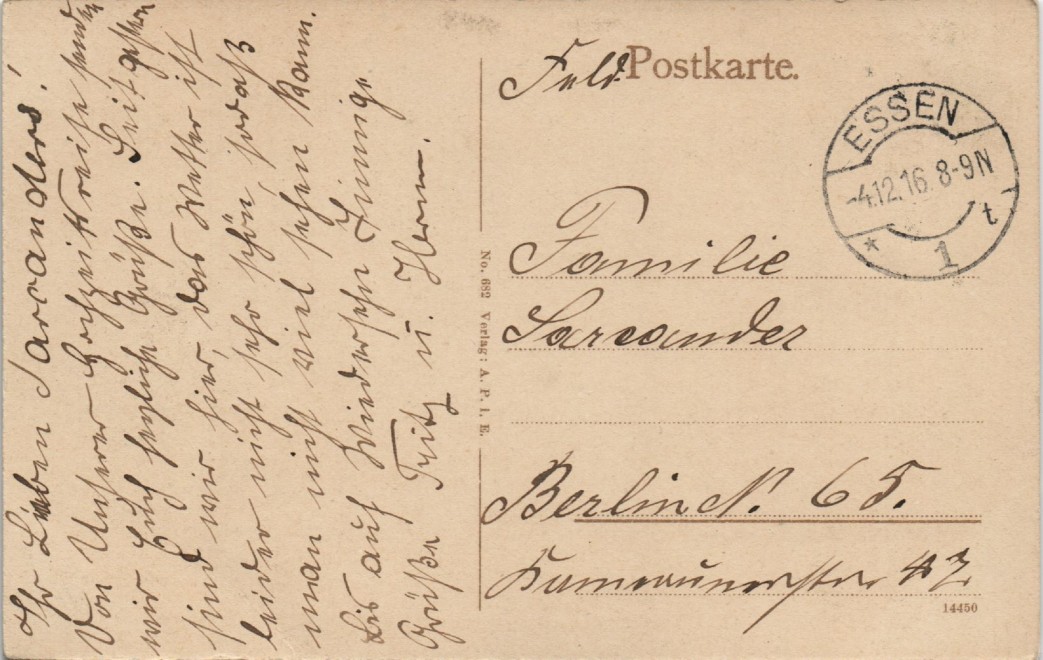 Ihr Lieben Sarcanders!
Von Unserer Hochzeitsreise senden
wir Euch herzliche Grüße. Seit gestern
sind wir hier, das Wetter ist
leider nicht sehr schön, sodaß
man nicht viel sehen kann.
Bis auf Wiedersehn Innige
Grüße Fritz u. Herm.
Feld Postkarte.
ESSEN
-4.12.16. 8-9N
* 1 t
Familie
Sarcander
Berlin N. 65.
Kamerunerstr 42
No. 682 Verlag: A. P. i. E.
14450